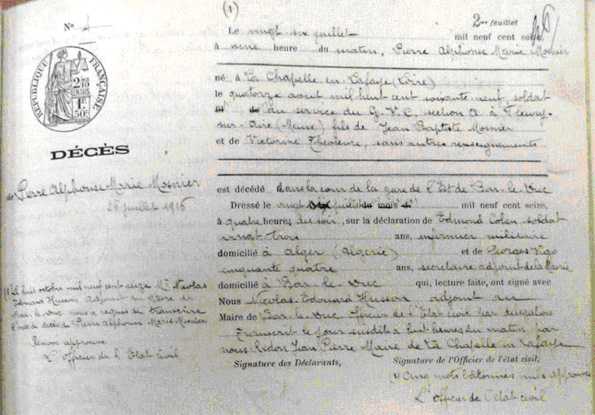 (1)
2me feuillet
N° 4
RÉPUBLIQUE FRANÇAISE
DÉCÈS
de Pierre Alphonse Marie Mosnier
26 juillet 1916
Le vingt six juillet mil neuf cent seize,
à onze heure du matin, Pierre Alphonse Marie Mosnier
né à La Chapelle en Lafaye (Loire)
le quatorze aout mil huit cent soixante neuf, soldat
au service du G.V.C. section A à Fleury-
sur-Aire (Meuse) fils de Jean Baptiste Mosnier
et de Victorine, sans autres renseignements
est décédé dans la cour de la gare de l'Est de Bar-le-Duc
Dressé le vingt juillet mil neuf cent seize,
à quatre heures du soir, sur la déclaration de Edmond Cohen soldat
vingt trois ans, infirmier militaire
domicilié à Alger (Algérie) et de Georges
cinquante quatre ans, secrétaire adjoint de la Mairie
domicilié à Bar-le-Duc qui, lecture faite, ont signé avec
Nous Nicolas-Edouard Husson, adjoint au
Maire de Bar-le-Duc officier de l'état civil par délégation
Transcrit le jour susdit à huit heures du matin par
nous Jean Pierre Maire de La Chapelle en Lafaye
Signature des Déclarants, Signature de l'Officier de l'état civil,
cinq mots bâtonnés
L'officier de l'état civil
(1) Le huit octobre mil neuf cent seize Mr Nicolas
Edouard Husson adjoint au Maire de
Bar-le-Duc nous a requis de transcrire
l'acte de décès de Pierre Alphonse Marie Mosnier
Renvoi approuvé
L'officier de l'Etat civil